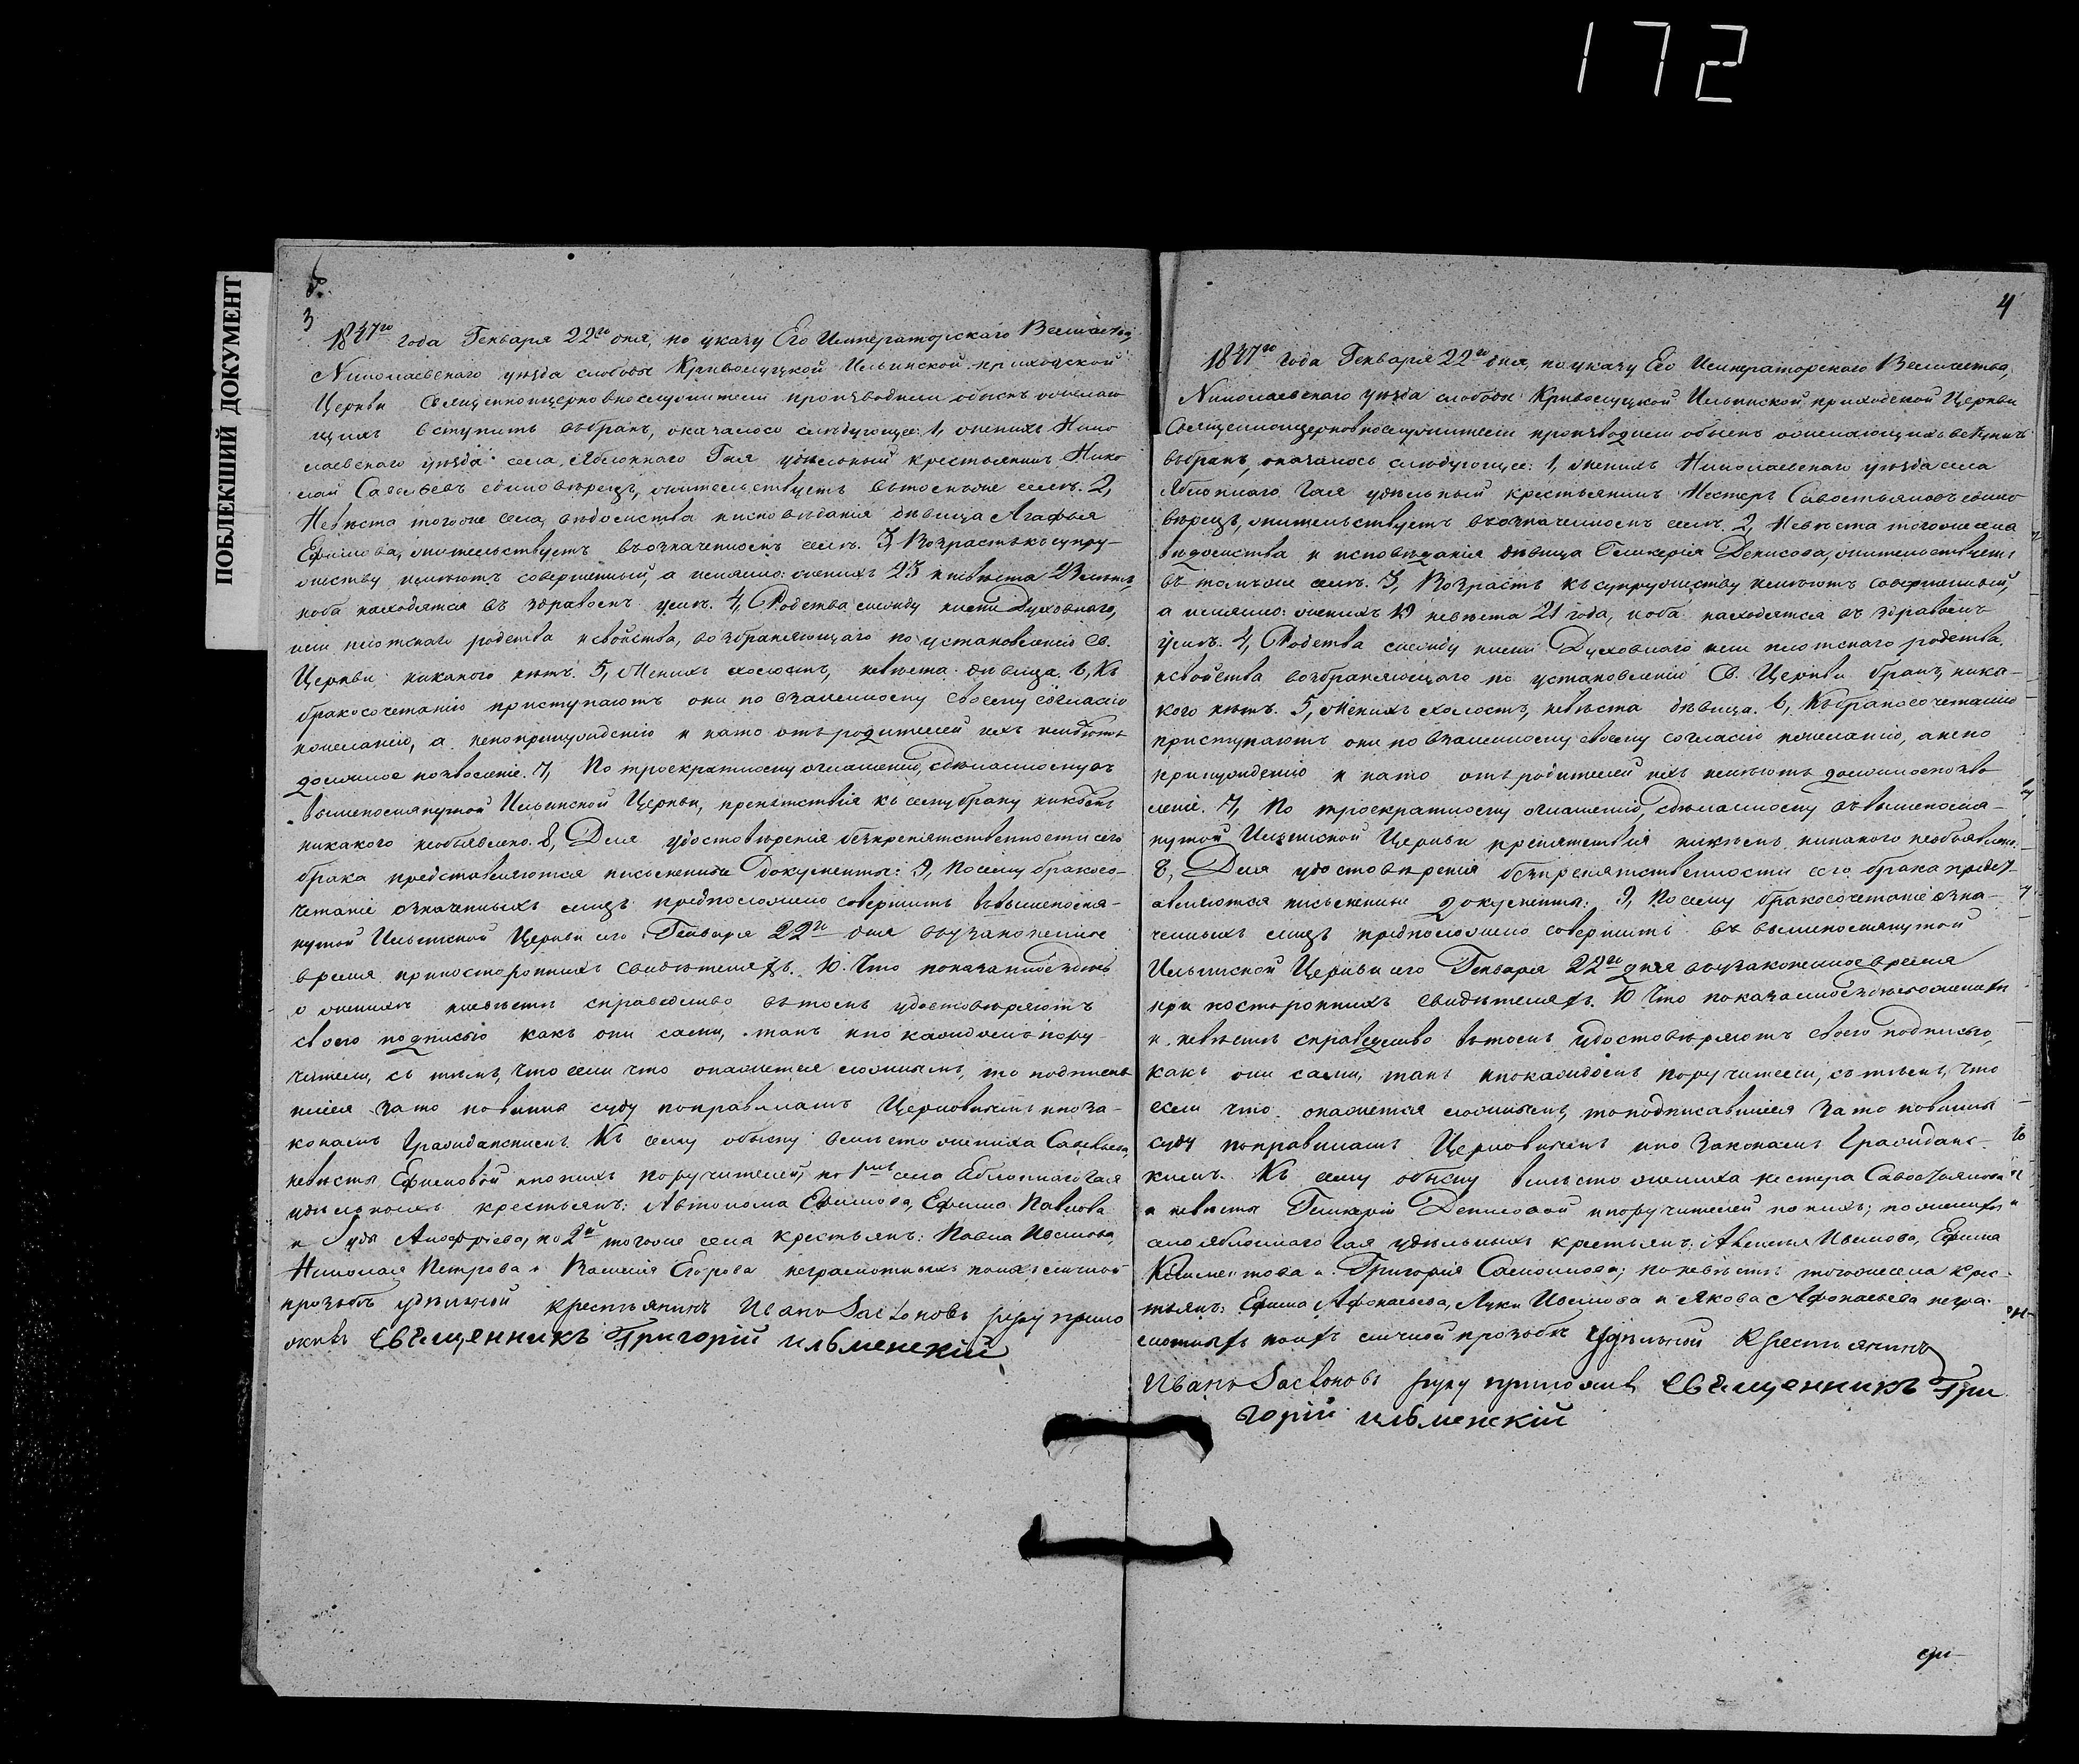 172
ПОБЛЕКШИЙ ДОКУМЕНТ
3
1847го года Генваря 22го дня, по указу Его Императорскаго Величества,
Николаевскаго уѣзда слободы Криволуцкой Ильинской приходской
Церкви Священноцерковнослужители производили обыскъ о желаю
щихъ вступить въ бракъ, оказалось слѣдующее: 1, женихъ Нико
лаевскаго уѣзда села Яблоннаго Гая удѣльный крестьянинъ Нико
лай Савельевъ единовѣрецъ, жительствуетъ въ томъ же селѣ. 2,
Невѣста того же села, вѣдомства и исповѣданія дѣвица Агафья
Ефимова, жительствуетъ въ означенномъ селѣ. 3, Возрастъ къ супру-
жеству имѣютъ совершенный, а именно: женихъ 23 невѣста 23 лѣтъ,
и оба находятся въ здравомъ умѣ. 4, Родства между ними Духовнаго,
или плотскаго родства и свойства, возбраняющаго по установленію Св.
Церкви никакого нѣтъ. 5, Женихъ холостъ, невѣста дѣвица. 6, Къ
бракосочетанію приступаютъ они по взаимному своему согласію
и желанію, а не по принужденію и на то отъ родителей ихъ имѣютъ
должное позволеніе. 7, По троекратному оглашенію, сдѣланному въ
вышепомянутой Ильинской Церкви, препятствія къ сему браку никѣмъ
никакого необъявлено. 8, Для удостовѣренія безпрепятственности сего
брака представляются письменные документы: 9, По сему бракосо-
четаніе означенныхъ лицъ предположено совершить въ вышепомя-
нутой Ильинской Церкви сего Генваря 22го дня въ узаконенное
время при постороннихъ свидѣтеляхъ. 10. Что показанное здѣсь
о женихѣ и невѣстѣ справедливо въ томъ удостовѣряютъ
своею подписью какъ они сами, такъ и по каждомъ пору-
чители, съ тѣмъ, что если что окажется ложнымъ, то подписав
шіеся за то повинны суду по правиламъ Церковнымъ и по за-
конамъ Гражданскимъ. Къ сему обыску вмѣсто жениха Савельева,
невѣсты Ефимовой и по нихъ поручителей, по 1мъ села Яблоннаго Гая
удѣльныхъ крестьянъ: Автонома Ефимова, Ефима Павлова
и Гуды Анофріева, по 2й того же села крестьянъ: Павла Иванова,
Николая Петрова и Василія Егорова неграмотныхъ по ихъ личной
прозьбѣ удѣльной крестьянинъ Иванъ руку прило
жилъ Священникъ Григорій Ильменскій
4
1847го года Генваря 22го дня, по указу Его Императорскаго Величества,
Николаевскаго уѣзда слободы Криволуцкой Ильинской приходской Церкви
Священноцерковнослужители производили обыскъ о желающихъ вступить
въ бракъ, оказалось слѣдующее: 1, женихъ Николаевскаго уѣзда села
Яблоннаго Гая удѣльный крестьянинъ Нестеръ Савостьяновъ едино
вѣрецъ, жительствуетъ въ означенномъ селѣ. 2, Невѣста того же села
вѣдомства и исповѣданія дѣвица Гликерія Денисова, жительствуетъ
въ томъ же селѣ. 3, Возрастъ къ супружеству имѣютъ совершенный,
а именно: женихъ 19 невѣста 21 года, и оба находятся въ здравомъ
умѣ. 4, Родства между ними Духовнаго или плотскаго родства,
и свойства возбраняющаго по установленію Св. Церкви бракъ, ника-
кого нѣтъ. 5, Женихъ холостъ, невѣста дѣвица. 6, Къ бракосочетанію
приступаютъ они по взаимному своему согласію и желанію, а не по
принужденію и на то отъ родителей ихъ имѣютъ должное позво
леніе. 7, По троекратному оглашенію, сдѣланному въ вышепомя-
нутой Ильинской Церкви препятствія никѣмъ никакого необъявлено.
8, Для удостовѣренія безпрепятственности сего брака предст
авляются письменные документы: 9, По сему бракосочетаніе озна-
ченныхъ лицъ предположено совершить въ вышепомянутой
Ильинской Церкви сего Генваря 22го дня въ узаконенное время
при постороннихъ свидѣтеляхъ. 10 Что показанное здѣсь о женихѣ
и невѣстѣ справедливо въ томъ удостовѣряютъ своею подписью,
какъ они сами, такъ и по каждомъ поручители, съ тѣмъ, что
если что окажется ложнымъ, то подписавшіеся за то повинны
суду по правиламъ Церковнымъ и по законамъ Гражданс-
кимъ. Къ сему обыску вмѣсто жениха Нестера Савостьянова
и невѣсты Гликеріи Денисовой и поручителей по нихъ; по женихѣ
села Яблоннаго Гая удѣльныхъ крестьянъ: Иванова, Ефима
Климентова и Григорія Самойлова; по невѣстѣ того же села крес-
тьянъ: Ефима Афонасьева, Луки Иванова и Якова Афонасьева негра-
мотныхъ по ихъ личной прозьбѣ удѣльной крестьянинъ
Иванъ руку приложилъ Священникъ Гри
горій Ильменскій